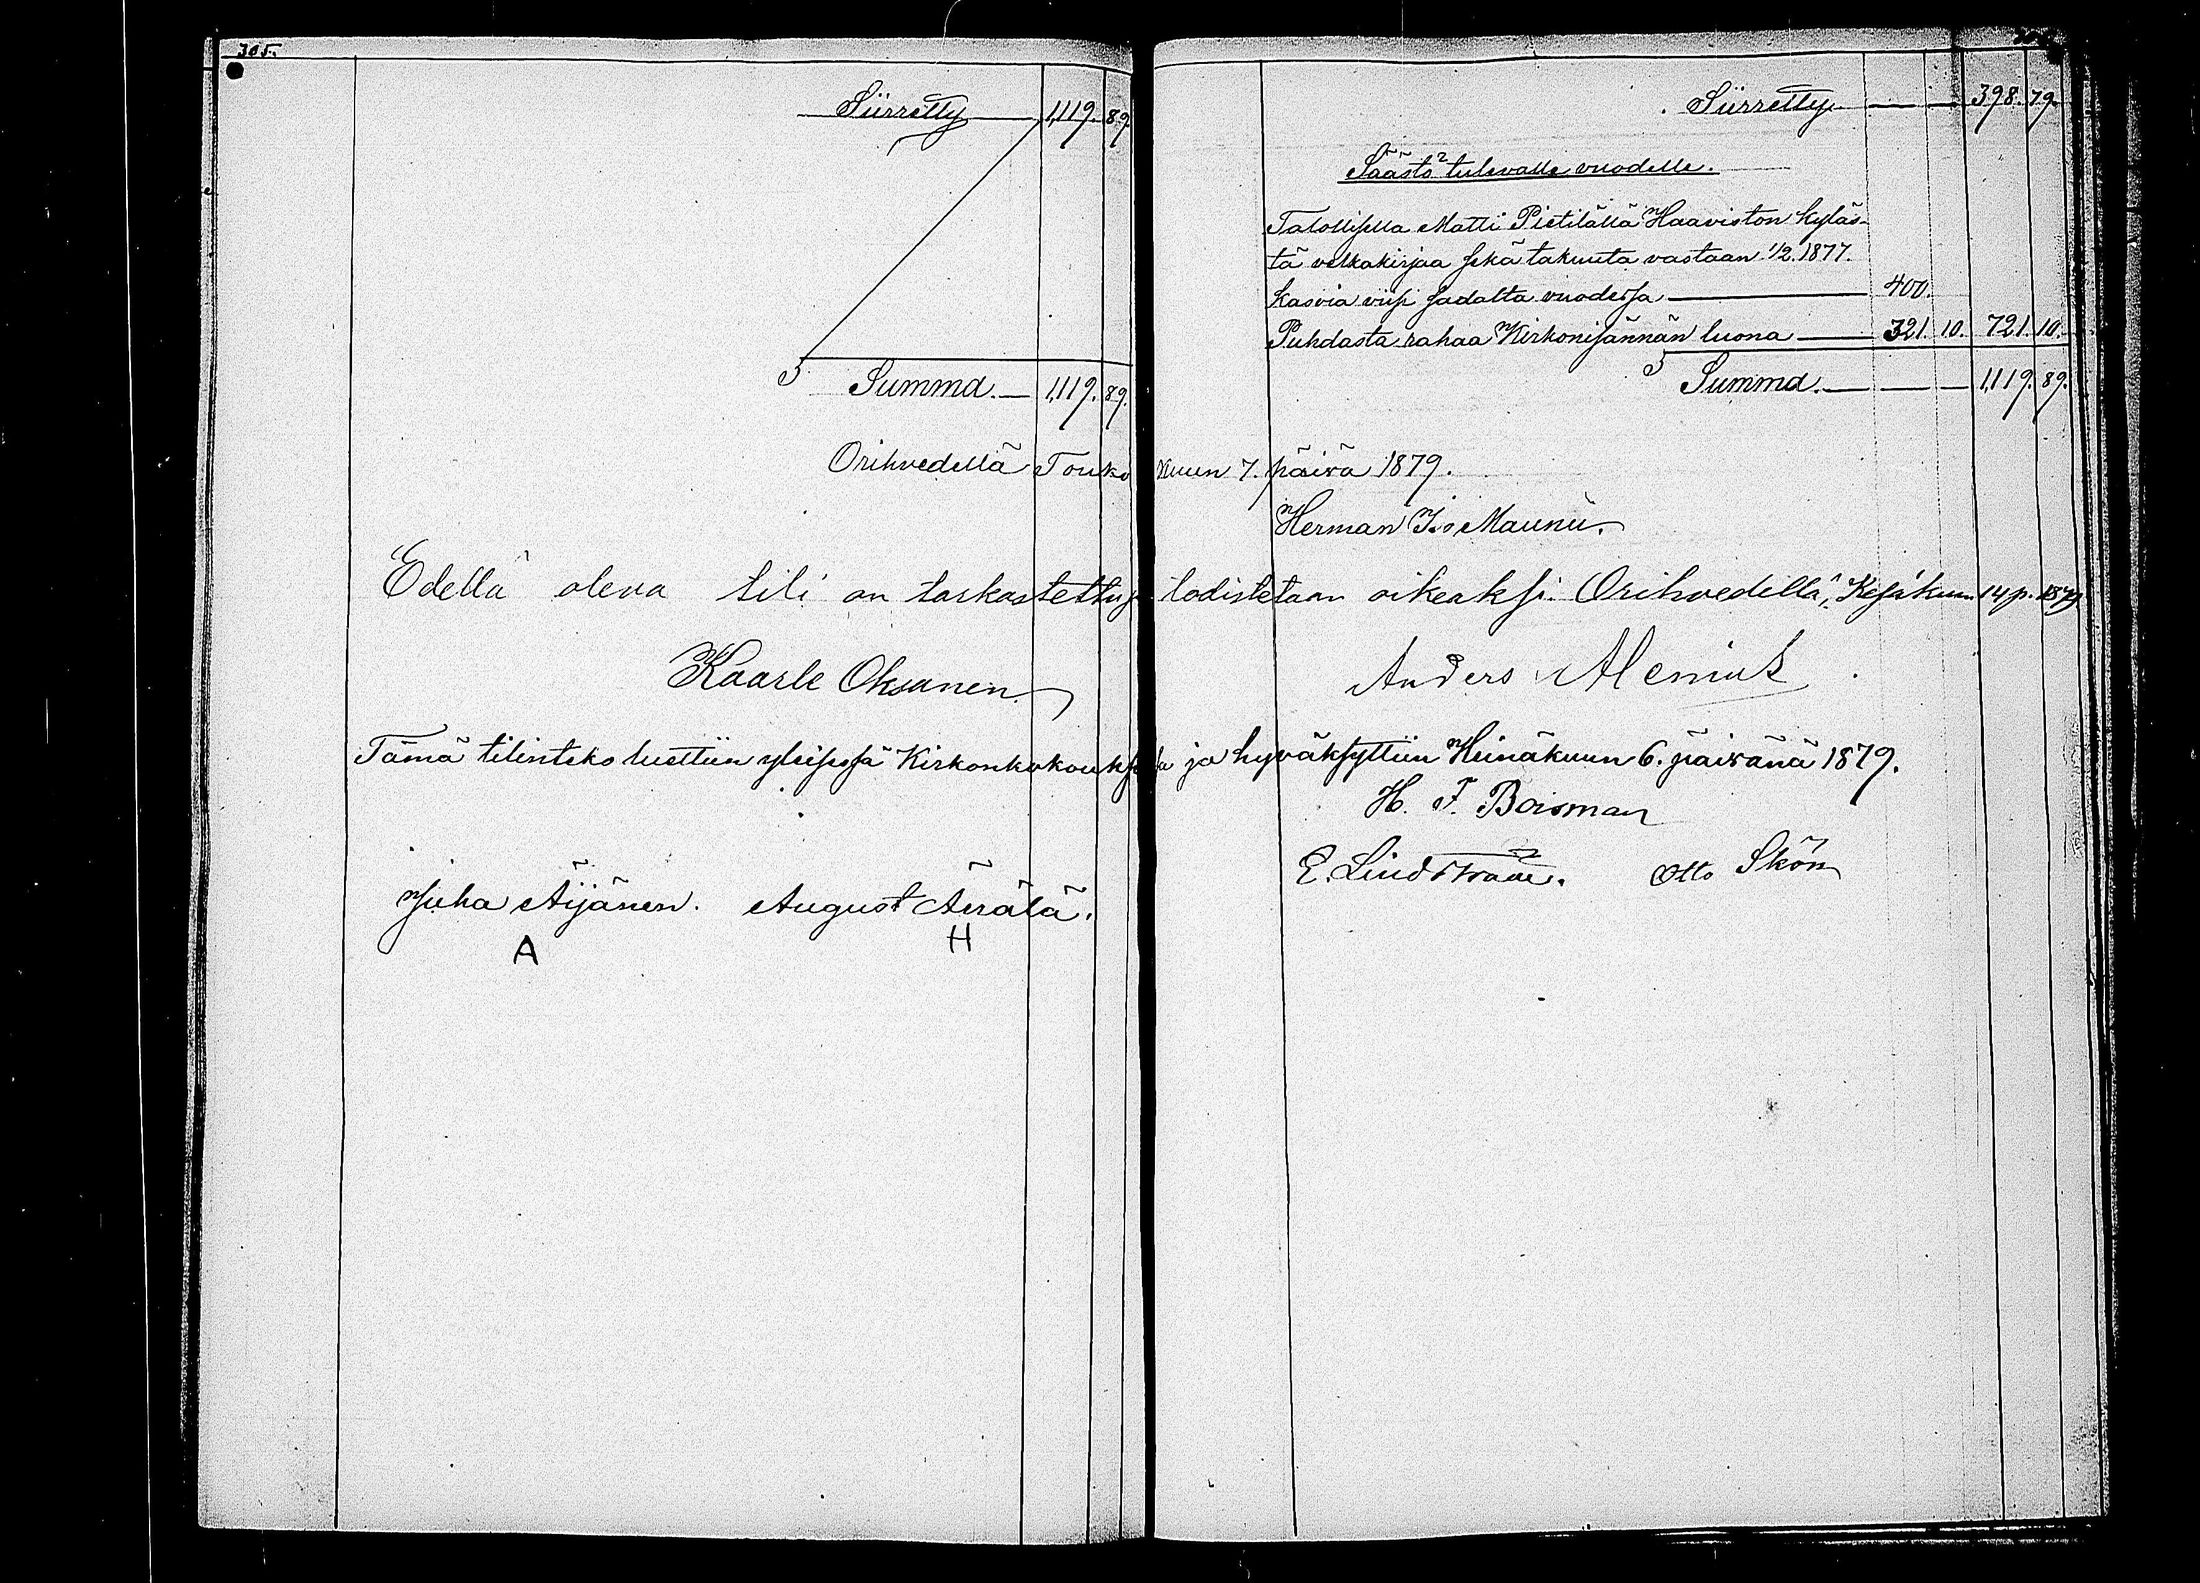 305.
Siirretty 1,119. 89.
Summa. 1,119. 89.
Siirretty 398. 79.
Säästö tulevalle vuodelle.
Talollisella Matti Pietilällä Haaviston kyläs-
tä velkakirjaa sekä takuuta vastaan 1/2. 1877.
kasvia viisi sadalta vuodessa 400.
Puhdasta rahaa Kirkonisännän luona 321. 10. 721. 10.
Summa. 1,119. 89.
Orihvedellä Toukokuun 7. päivä 1879.
Herman Iso Maunu.
Edellä oleva tili on tarkastettu ja todistetaan oikeaksi. Orihvedellä, Kesäkuun 14 p. 1879
Kaarle Oksanen Anders Alenius
Tämä tilinteko luettiin yleisessä Kirkonkokouksessa ja hyväksyttiin Heinäkuun 6. päivänä 1879.
H. F. Boisman
Juha Äijänen. August Äerälä. E. Lindström. Otto Skön
A H